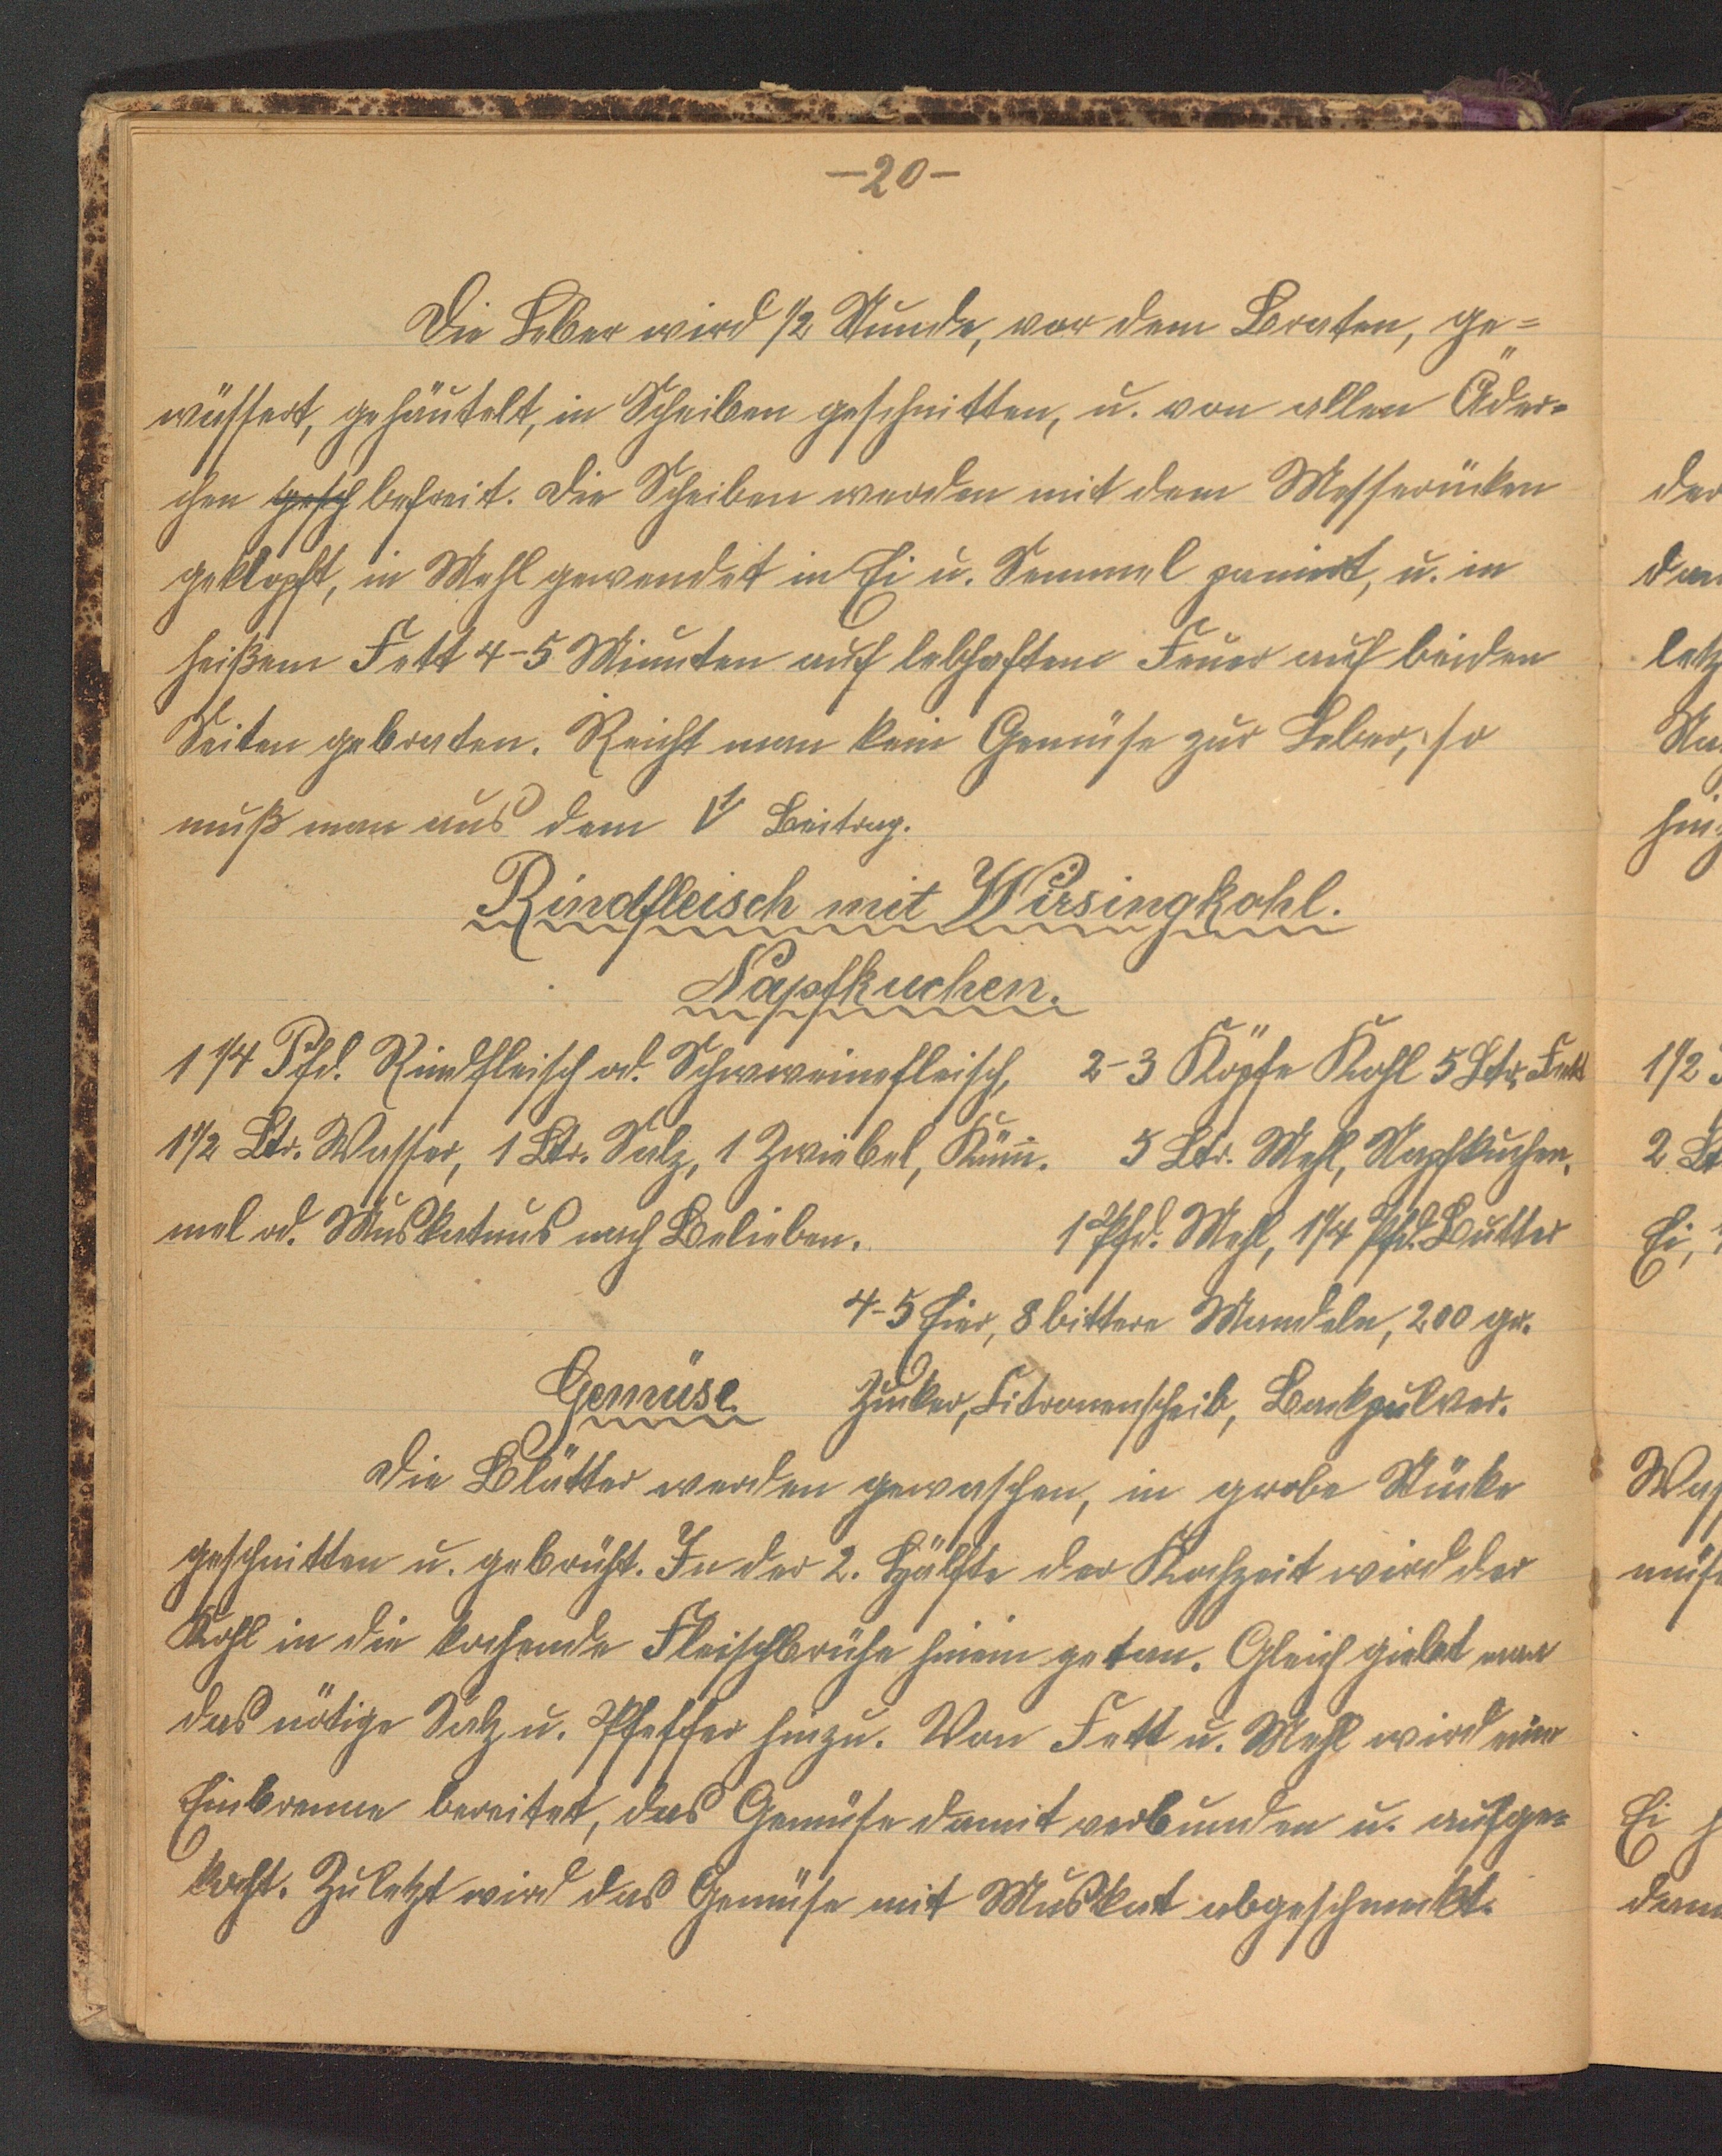 -20-
Die Leber wird 1/2 Stunde, vor dem Braten, ge=
wässert, gehäutelt, in Scheiben geschnitten, u. von allen Äder=
chen gesch befreit. Die Scheiben werden mit dem Messerücken
geklopft, in Mehl gewendet in Ei u. Semmel paniert, u. in
heißem Fett 4-5 Minuten auf lebhaftem Feuer auf beiden
Seiten gebraten. Reicht man kein Gemüse zur Leber, so
muß man aus dem Beitrag.
Rindfleisch mit Wirsingkohl.
Napfkuchen.
1 1/4 Pfd. Rindfleisch od. Schweinefleisch, 2-3 Köpfe Kohl 5 Ltr. Fett
1 1/2 Ltr. Wasser, 1 Ltr. Salz, 1 Zwiebel, Küm̅. 5 Ltr. Mehl, Napfkuchen,
mel od. Muskatnus nach Belieben. 1 Pfd. Mehl, 1/4 Pfd. Butter
4-5 Eier, 8 bittere Mandeln, 200 gr.
Gemüse. Zucker, Citronenscheib, Backpulver.
Die Blätter werden gewaschen, in grobe Stücke
geschnitten u. gebrüht. In der 2. Hälfte der Kochzeit wird der
Kohl in die kochende Fleischbrühe hinein getan. Gleich giebt man
das nötige Salz u. Pfeffer hinzu. Von Fett u. Mehl wird eine
Einbrenne bereitet, das Gemüse damit verbunden u. aufge=
kocht. Zuletzt wird das Gemüse mit Muskat abgeschmekt.